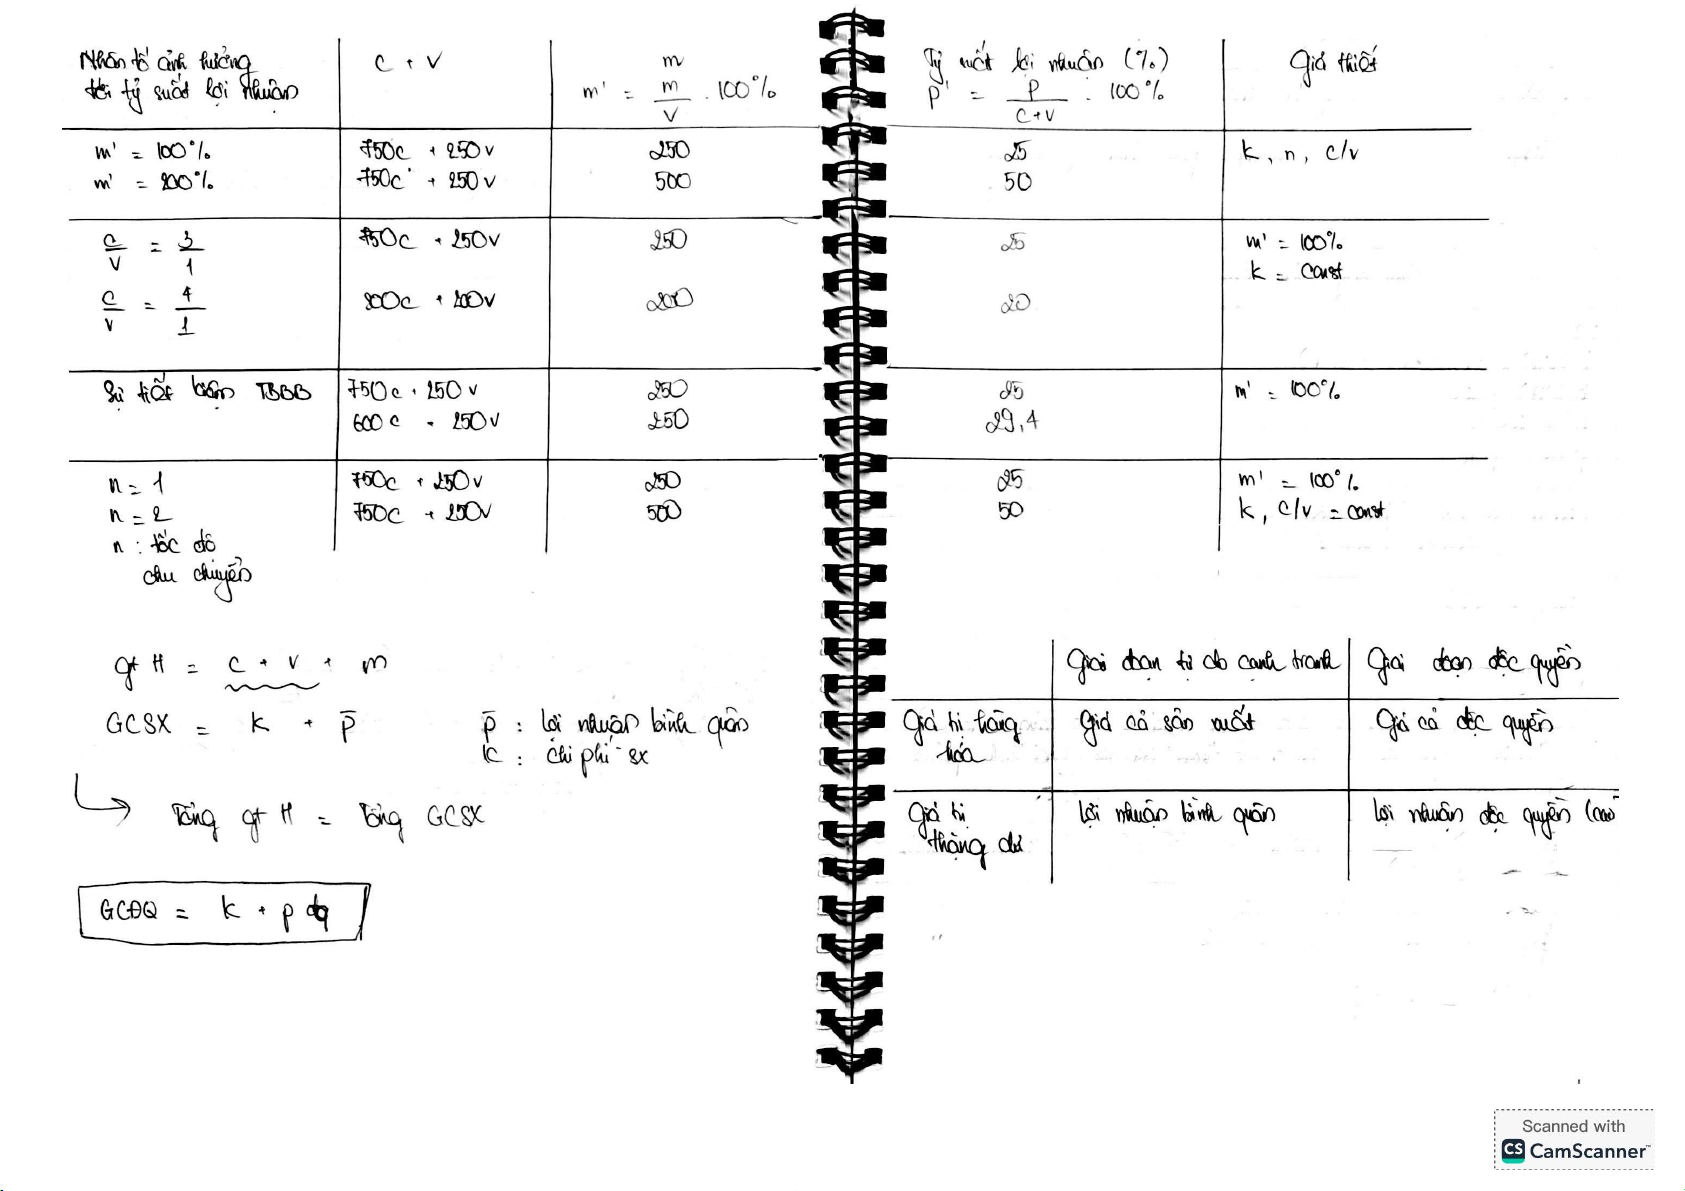 Nhân tố ảnh hưởng tới tỷ suất lợi nhuận | c + v | m m' = m/v . 100% | Tỷ suất lợi nhuận (%) p' = p/(c+v) . 100% | Giả thiết
m' = 100% | 750c + 250v | 250 | 25 | k, n, c/v
m' = 200% | 750c + 250v | 500 | 50
c/v = 3/1 | 750c + 250v | 250 | 25 | m' = 100%
k = const
c/v = 4/1 | 800c + 200v | 200 | 20
Sự tiết kiệm TBBB | 750c + 250v | 250 | 25 | m' = 100%
600c + 250v | 250 | 29,4
n = 1 | 750c + 250v | 250 | 25 | m' = 100%
n = 2 | 750c + 250v | 500 | 50 | k, c/v = const
n : tốc độ
chu chuyển
gt H = c + v + m
GCSX = k + p̄
p̄ : lợi nhuận bình quân
k : chi phí sx
Tổng gt H = Tổng GCSX
GCĐQ = k + p đq
Giai đoạn tự do cạnh tranh | Giai đoạn độc quyền
Giá trị hàng hóa | Giá cả sản xuất | Giá cả độc quyền
Giá trị thặng dư | lợi nhuận bình quân | lợi nhuận độc quyền (cao
Scanned with
CS CamScanner